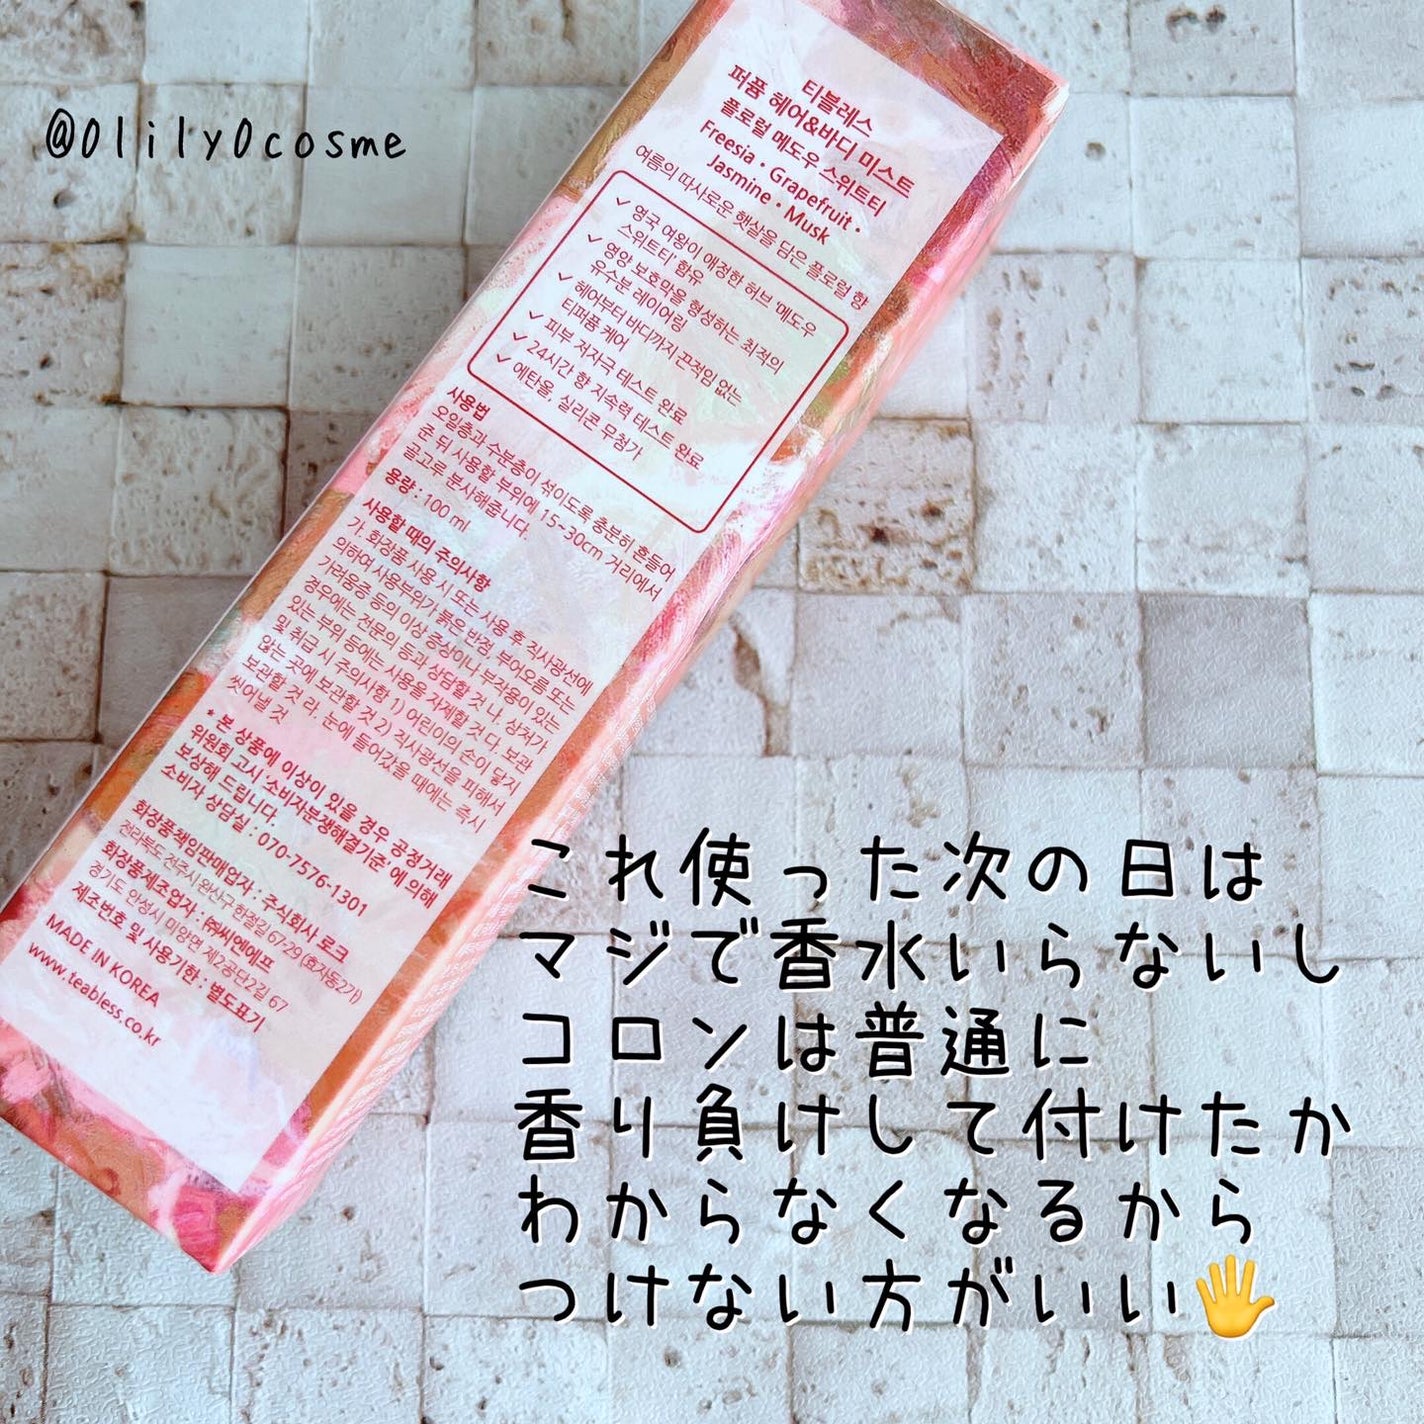 @0lily0cosme
티블레스
퍼퓸 헤어&바디 미스트
플로럴 메도우 스위트티
Freesia · Grapefruit ·
Jasmine · Musk
여름의 따사로운 햇살을 담은 플로럴 향
✓ 영국 여왕이 애정한 허브 '메도우
스위트티' 함유
✓ 영양 보호막을 형성하는 최적의
유수분 레이어링
✓ 헤어부터 바디까지 끈적임 없는
티퍼퓸 케어
✓ 피부 저자극 테스트 완료
✓ 24시간 향 지속력 테스트 완료
✓ 에탄올, 실리콘 무첨가
사용법
오일층과 수분층이 섞이도록 충분히 흔들어
준 뒤 사용할 부위에 15~30cm 거리에서
골고루 분사해줍니다.
용량 : 100 ml
사용할 때의 주의사항
가. 화장품 사용 시 또는 사용 후 직사광선에
의하여 사용부위가 붉은 반점, 부어오름 또는
가려움증 등의 이상 증상이나 부작용이 있는
경우에는 전문의 등과 상담할 것 나. 상처가
있는 부위 등에는 사용을 자제할 것 다. 보관
및 취급 시 주의사항 1) 어린이의 손이 닿지
않는 곳에 보관할 것 2) 직사광선을 피해서
보관할 것 라. 눈에 들어갔을 때에는 즉시
씻어낼 것
* 본 상품에 이상이 있을 경우 공정거래
위원회 고시 '소비자분쟁해결기준'에 의해
보상해 드립니다.
소비자 상담실 : 070-7576-1301
화장품책임판매업자 : 주식회사 로크
전라북도 전주시 완산구 한절길 67-29 (효자동2가)
화장품제조업자 : ㈜씨엔에프
경기도 안성시 미양면 제2공단2길 67
제조번호 및 사용기한 : 별도표기
MADE IN KOREA
www.teabless.co.kr
これ使った次の日は
マジで香水いらないし
コロンは普通に
香り負けして付けたか
わからなくなるから
つけない方がいい🖐